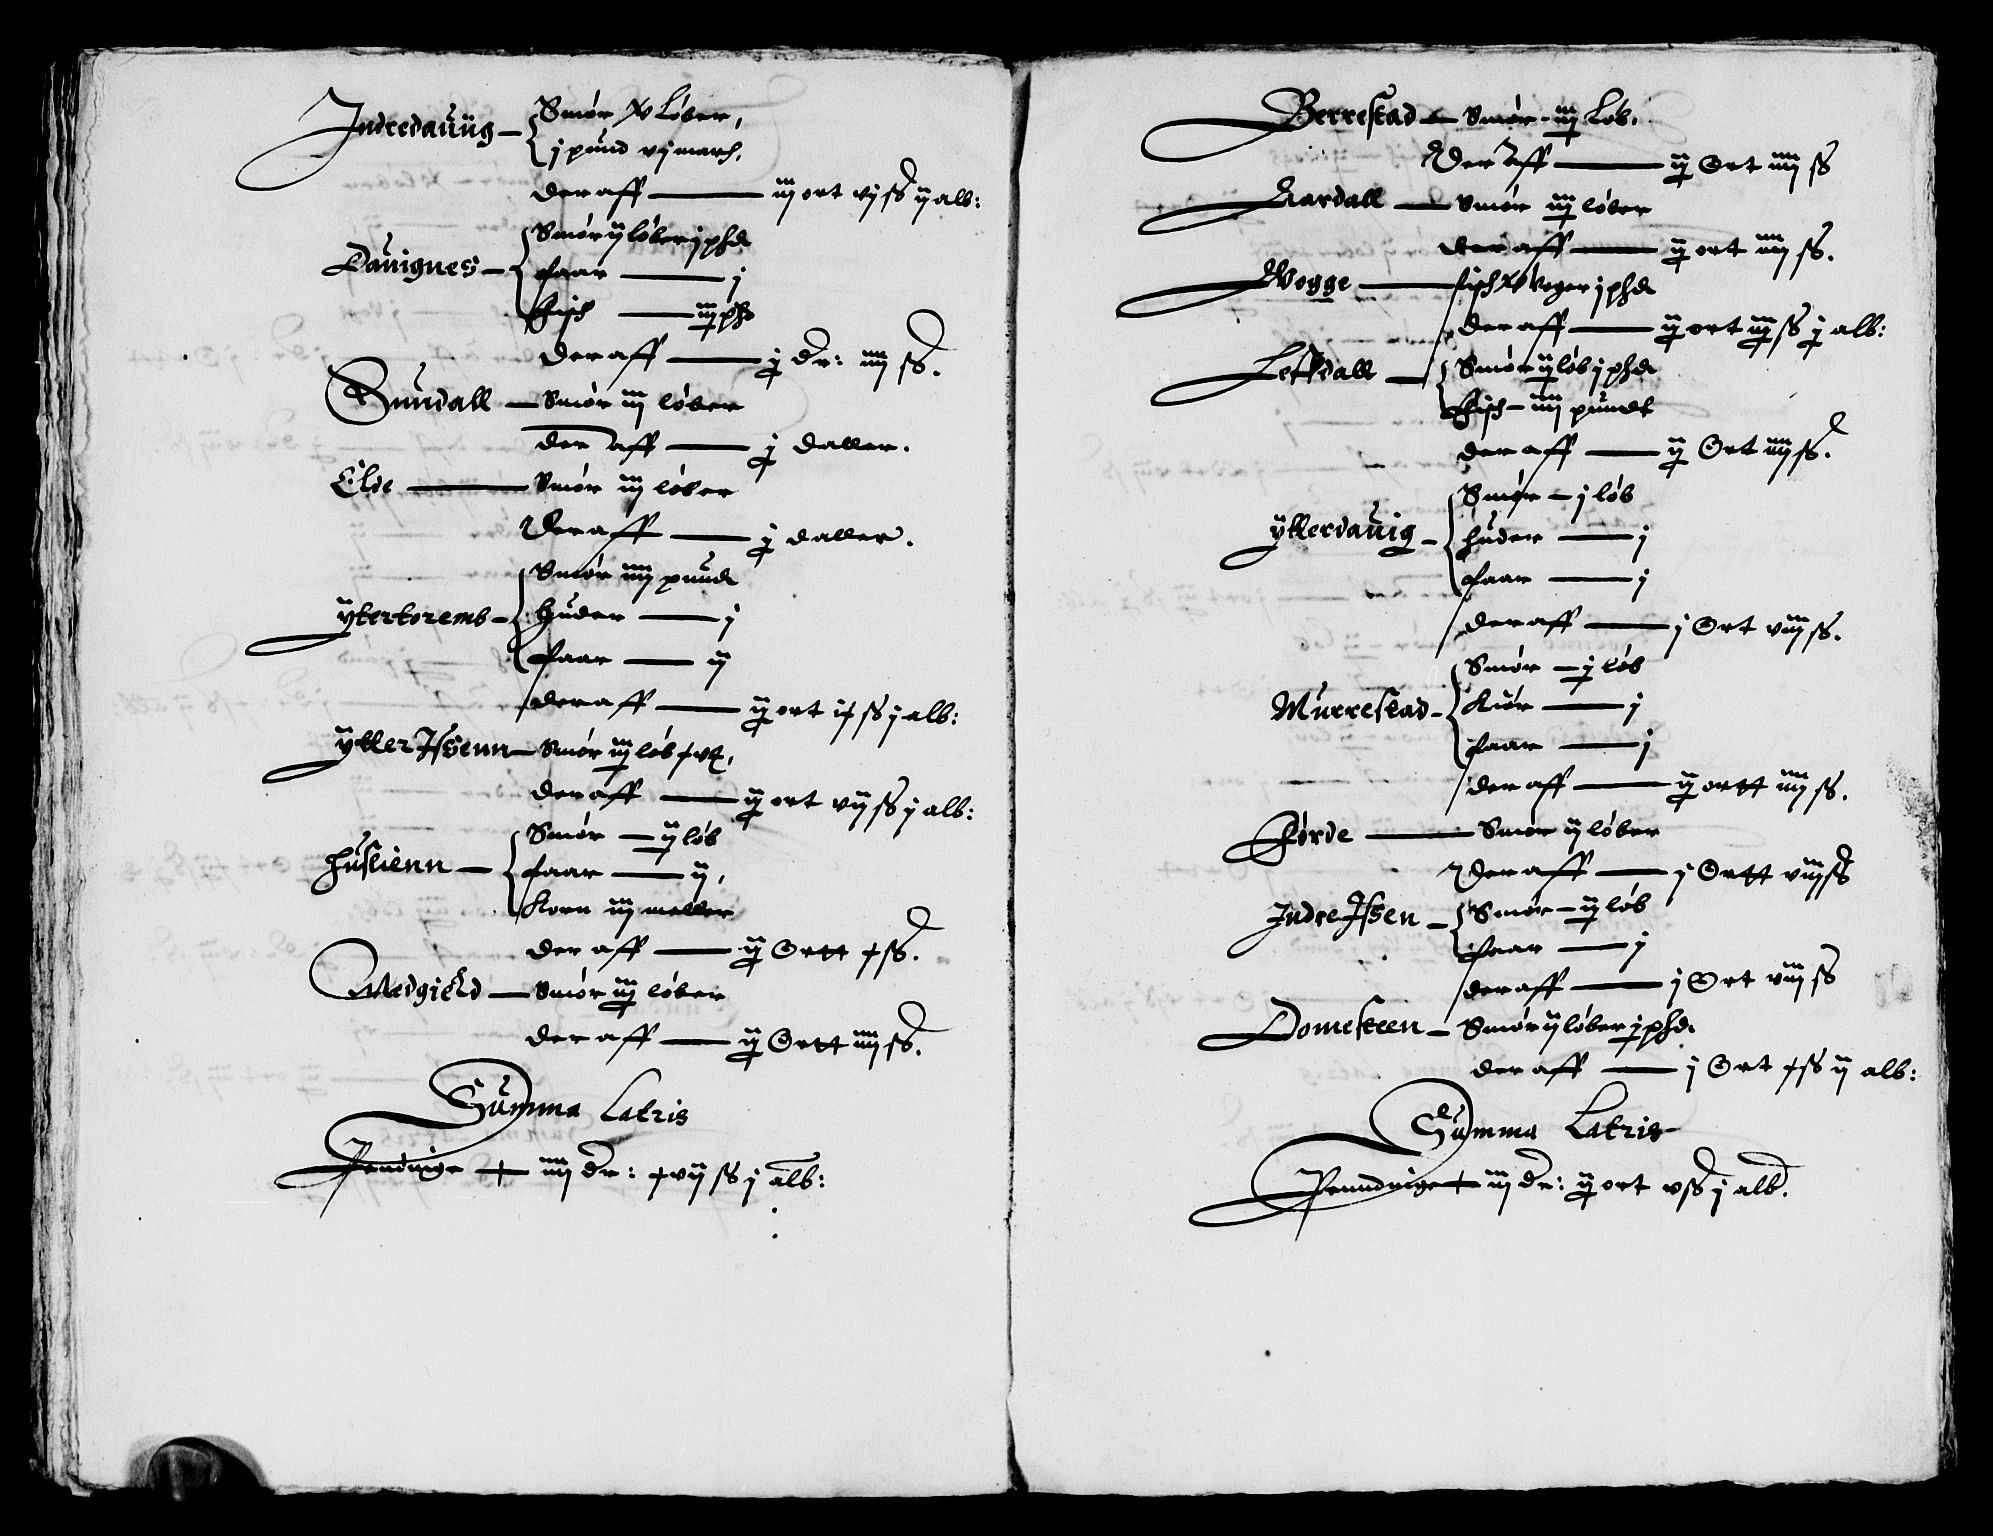 Indredauiig — Smør xv Løber,
j pund vj march.
der aff — iiij ort vj ß ij alb:
Dauignes — Smør ij løber j phd
faar — j
Fisch — iij ph
der aff — j dr: iiij ß.
Sundall — Smør iij løber
der aff — j daller.
Elde — Smør iij løber
Der aff — j daller.
ÿterkoremb — Smør iiij pund
Huder — j
faar — ij
der aff — ij ort ix ß j alb:
ÿtter Issenn — Smør iij løb
der aff — ij ort vij ß j alb:
Huslienn — Smør — ij løb
faar — ij,
Korn iij meller
der aff — ij Ortt x ß.
Medgield — Smør iij løber
der aff — ij Ortt iiij ß.
Summa Latris
Pendnige + iiij dr: xvij ß j alb:
Berrestad — Smør - iij Løb.
Der aff — ij Ort iiij ß
Aardall — Smør iij løber
der aff — ij ort iiij ß.
Wogge — fisch xv Voger j phd
der aff — ij ort iij ß j alb:
Leckdall — Smør ij løb j phd
Fisch — iiij pundt
der aff — ij Ort iiij ß.
ÿtterdauig — Smør — j løb
huder — j
faar — j
der aff — j Ort viij ß.
Murrestad — Smør — j løb
Kiør — j
faar — j
der aff — ij ortt iiij ß.
Førde — Smør ij løber
Der aff — j Ortt viij ß
Indre Issen — Smør — ij løb
faar — j
der aff — j Ort viij ß
Domesteen — Smør ij løber j phd.
der aff — j Ort x ß ij alb:
Summa Latris
Penndnige + iij dr: ij ort v ß j alb.